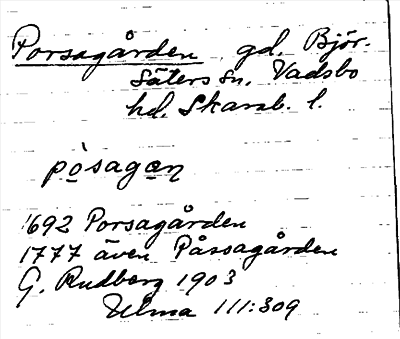 Porsagården gd. Björ-
säters sn. Vadsbo
hd. Skarab. l.
pòsagen
1692 Porsagården
1777 även Påssagården
G. Rudberg 1903
Ulma 111:309